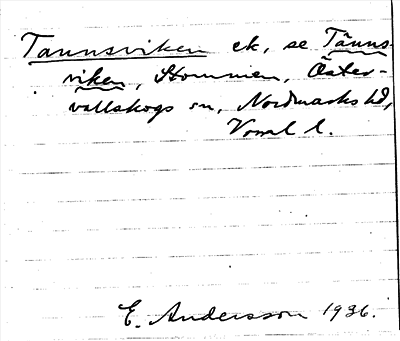 Tannsviken ek, se Tänns-
viken, Stommen, Öster-
vallskogs sn, Nordmarks hd,
Vsml l.
E. Andersson 1936.